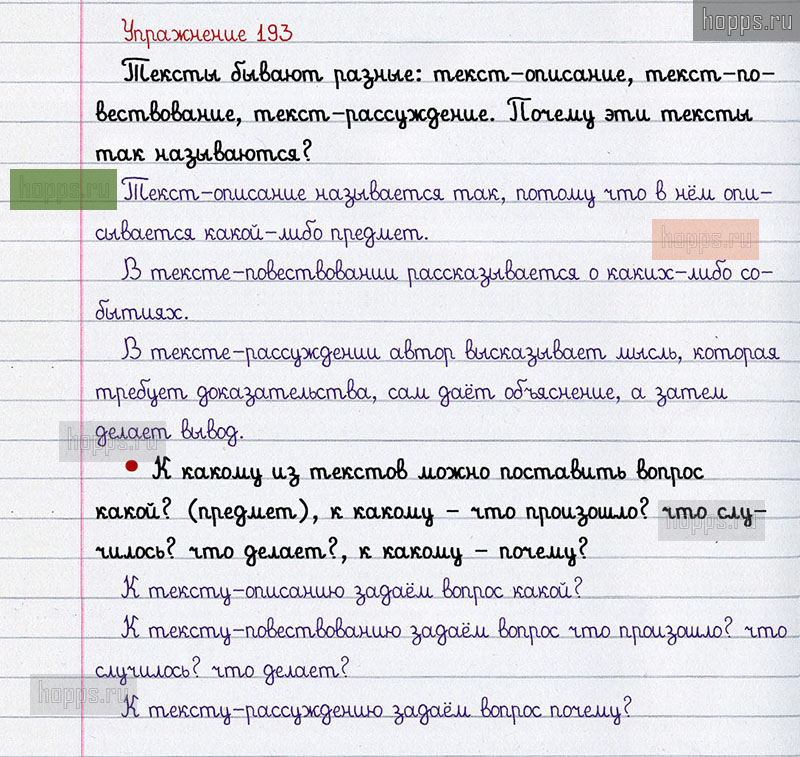 hopps.ru
Упражнение 193
Тексты бывают разные: текст-описание, текст-по-
вествование, текст-рассуждение. Почему эти тексты
так называются?
hopps.ru
Текст-описание называется так, потому что в нём опи-
сывается какой-либо предмет.
hopps.ru
В тексте-повествовании рассказывается о каких-либо со-
бытиях.
В тексте-рассуждении автор высказывает мысль, которая
требует доказательства, сам даёт объяснение, а затем
делает вывод.
hopps.ru
• К какому из текстов можно поставить вопрос
какой? (предмет), к какому – что произошло? что слу-
hopps.ru
чилось? что делает?, к какому – почему?
К тексту-описанию задаём вопрос какой?
К тексту-повествованию задаём вопрос что произошло? что
случилось? что делает?
hopps.ru
К тексту-рассуждению задаём вопрос почему?